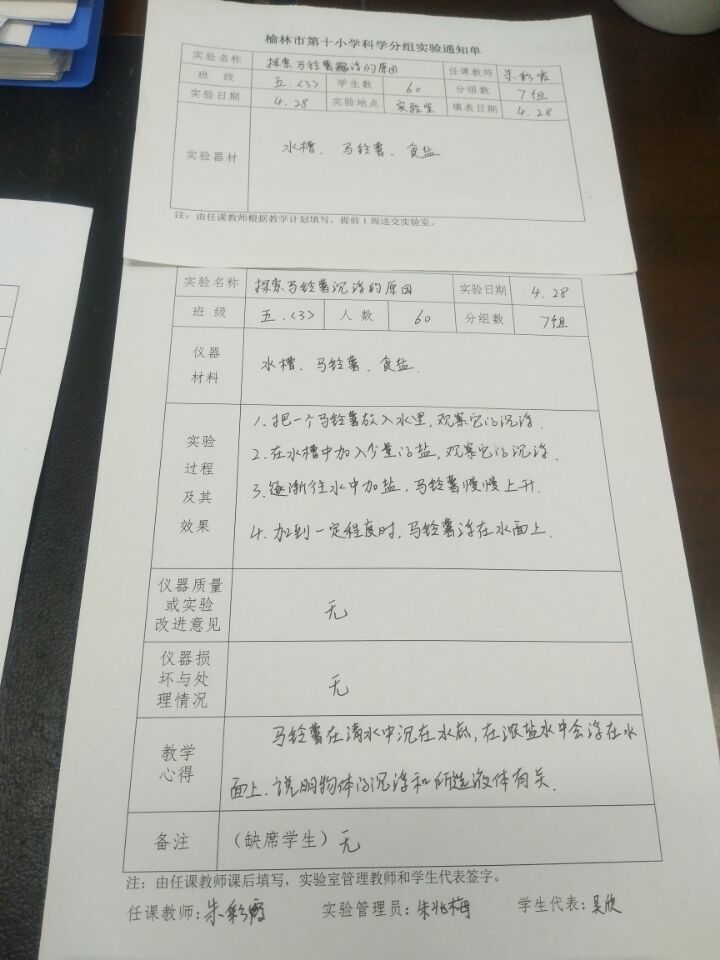 榆林市第十小学科学分组实验通知单
实验名称 探索马铃薯飘浮的原因 任课教师 朱彩霞
班 级 五.<3> 学生数 60 分组数 7组
实验日期 4.28 实验地点 实验室 填表日期 4.28
实验器材 水槽、马铃薯、食盐.
注：由任课教师根据教学计划填写，提前1周送交实验室。
实验名称 探索马铃薯沉浮的原因 实验日期 4.28
班 级 五.<3> 人 数 60 分组数 7组
仪器
材料
水槽、马铃薯、食盐.
实验
过程
及其
效果
1.把一个马铃薯放入水里,观察它的沉浮.
2.在水槽中加入少量的盐,观察它的沉浮.
3.逐渐往水中加盐,马铃薯慢慢上升.
4.加到一定程度时,马铃薯浮在水面上.
仪器质量
或实验
改进意见
无
仪器损
坏与处
理情况
无
教学
心得
马铃薯在清水中沉在水底,在浓盐水中会浮在水
面上.说明物体的沉浮和所选液体有关.
备注 (缺席学生) 无
注：由任课教师课后填写，实验室管理教师和学生代表签字。
任课教师:朱彩霞 实验管理员:朱兆梅 学生代表:吴欣